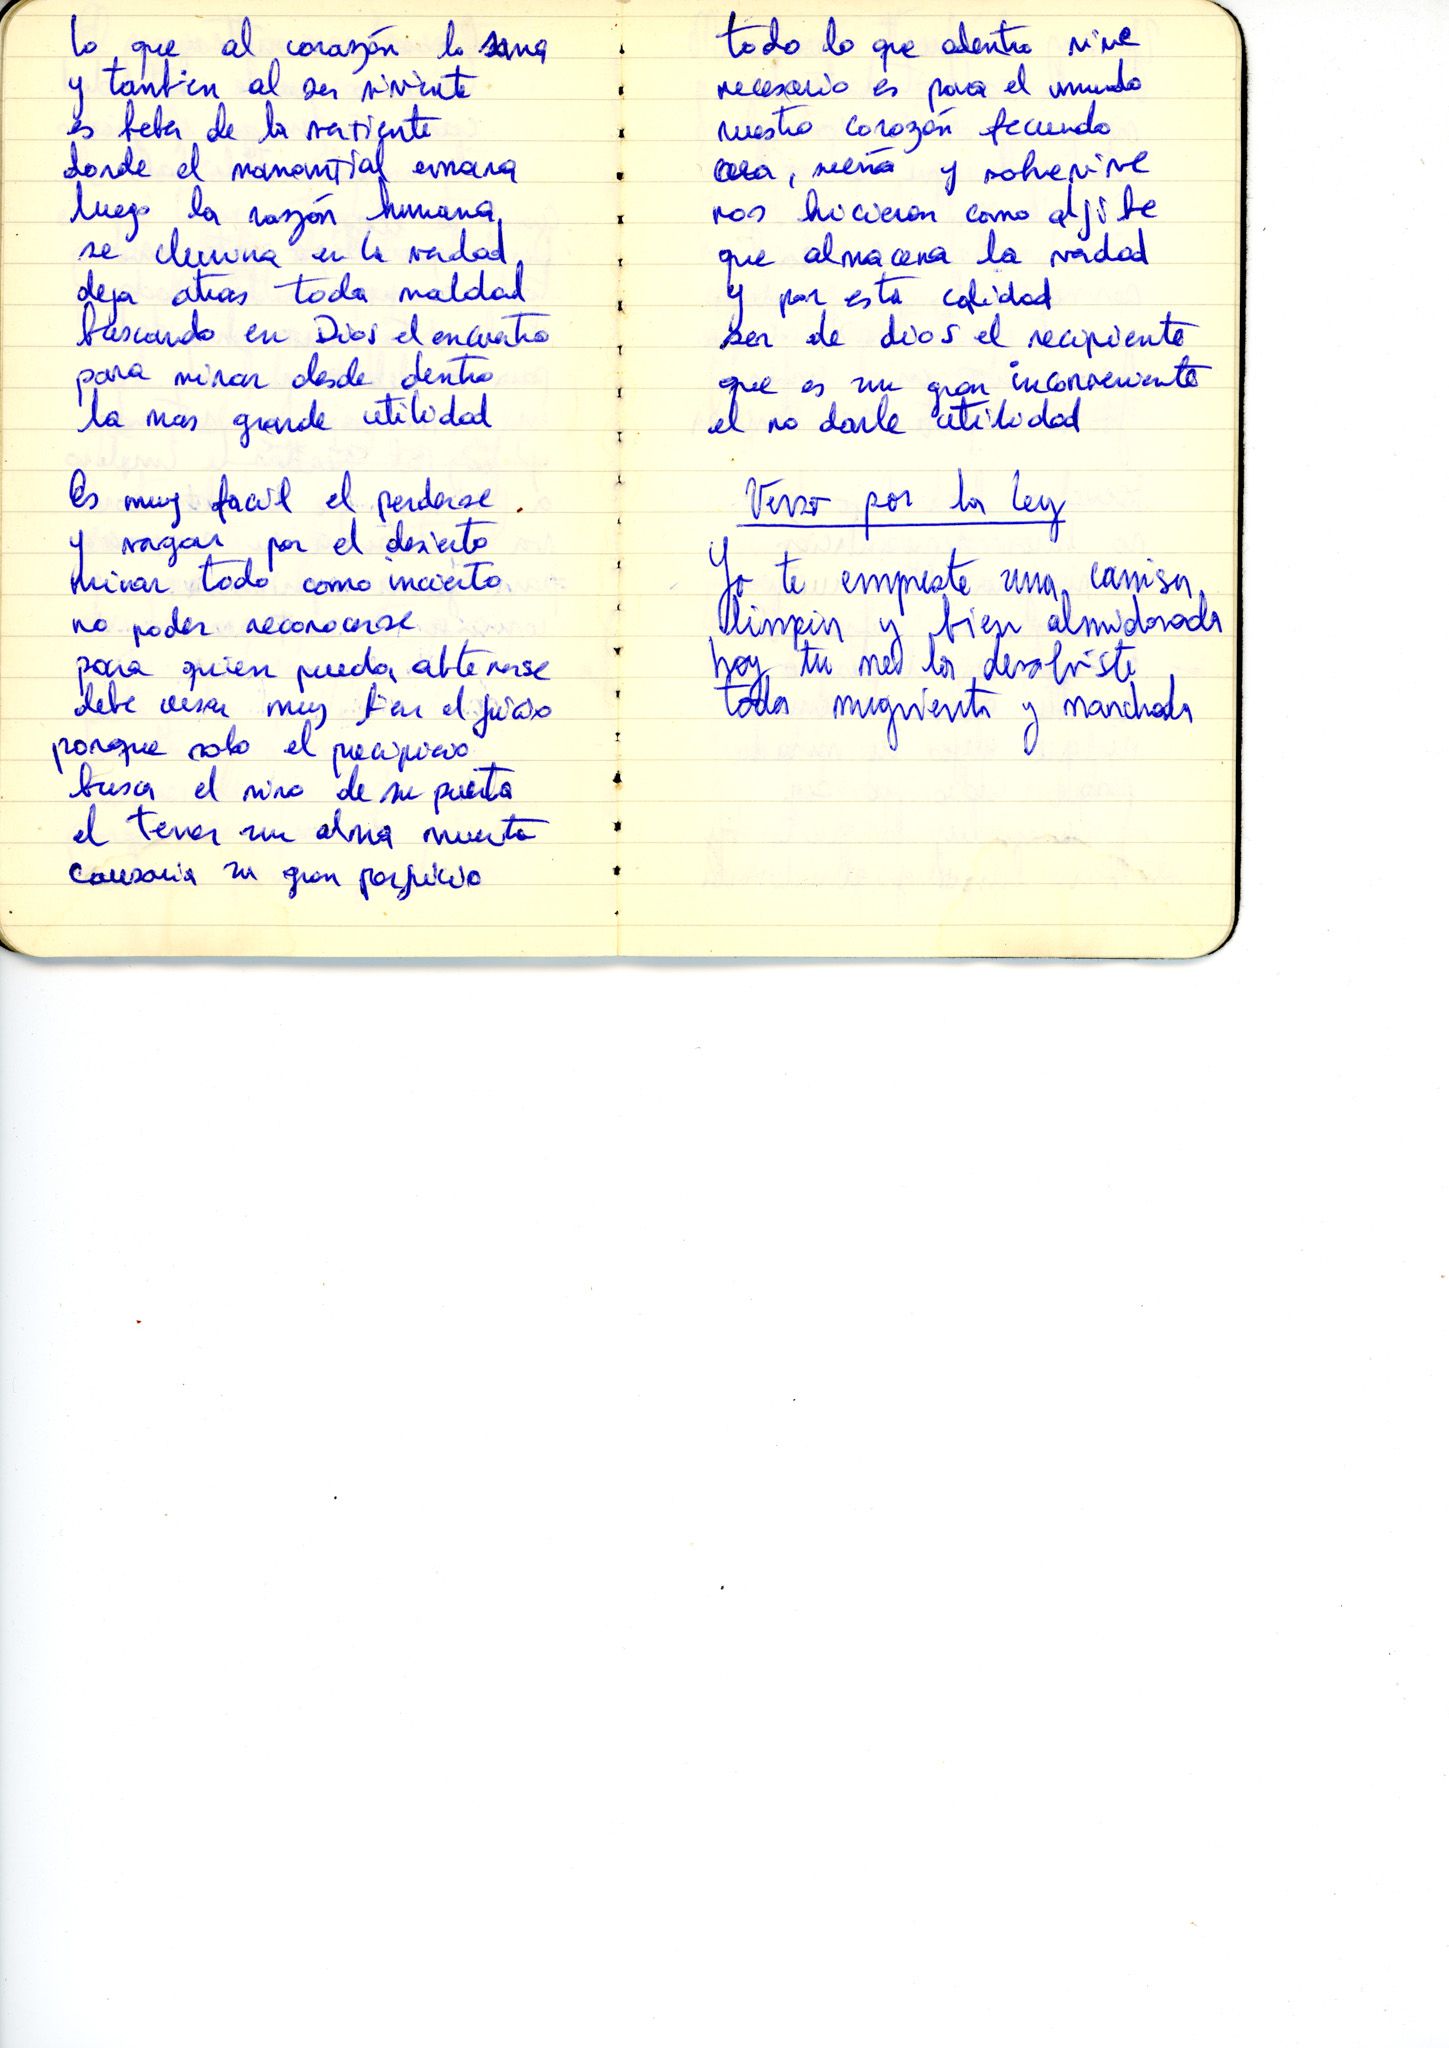 lo que al corazón lo sana
y tanbien al ser viviente
es beber de la vertiente
donde el manantial emana
luego la razón humana
se ilumina en la verdad
deja atras toda maldad
buscando en Dios el encuentro
para mirar desde dentro
la mas grande utilidad
Es muy facil el perderse
y vagar por el desierto
mirar todo como incierto
no poder reconocerse
para quien pueda abtenerse
debe usar muy bien el juicio
porque solo el precipicio
busca el nino de su puerta
el tener un alma muerta
causaria un gran perjuicio
todo lo que adentro vive
necesario es para el mundo
nuestro corazón fecundo
crea, sueña y sobrevive
nos hicieron como aljibe
que almacena la verdad
y por esta calidad
ser de dios el recipiente
que es un gran inconveniente
el no darle utilidad
Verso por la ley
Yo te empreste una camisa
limpia y bien almidonada
hoy tu me la devolviste
toda mugrienta y manchada